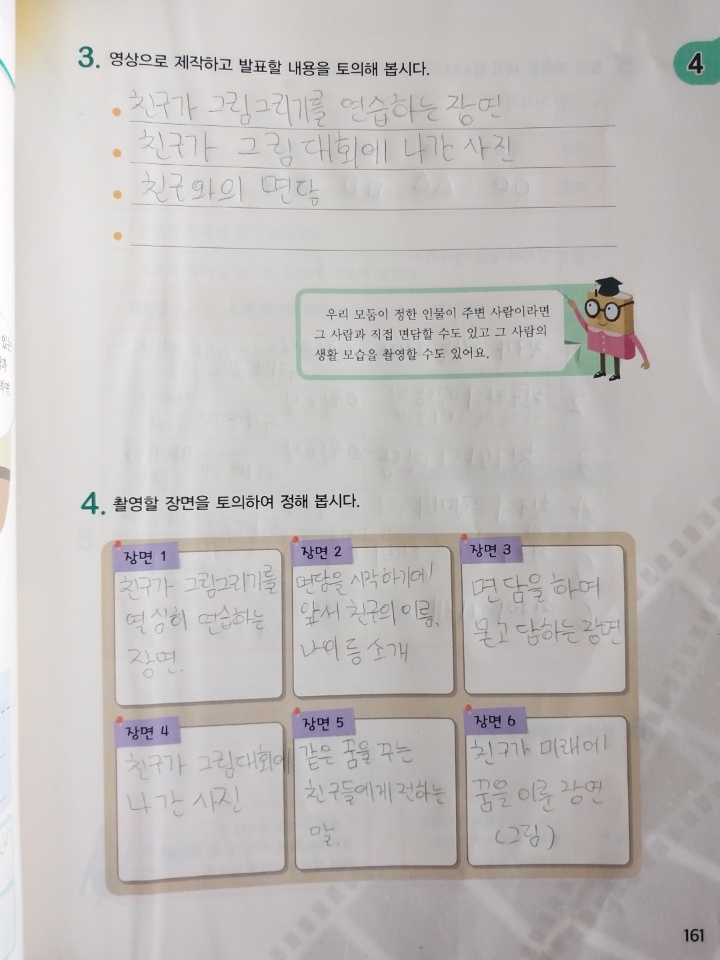 3. 영상으로 제작하고 발표할 내용을 토의해 봅시다.
4
친구가 그림그리기를 연습하는 장면
친구가 그림 대회에 나간 사진
친구와의 면담
우리 모둠이 정한 인물이 주변 사람이라면
그 사람과 직접 면담할 수도 있고 그 사람의
생활 모습을 촬영할 수도 있어요.
4. 촬영할 장면을 토의하여 정해 봅시다.
장면 1
친구가 그림그리기를
열심히 연습하는
장면.
장면 2
면담을 시작하기에
앞서 친구의 이름,
나이 등 소개
장면 3
면담을 하며
묻고 답하는 장면
장면 4
친구가 그림대회에
나간 사진
장면 5
같은 꿈을 꾸는
친구들에게 전하는
말.
장면 6
친구가 미래에
꿈을 이룬 장면
(그림)
161